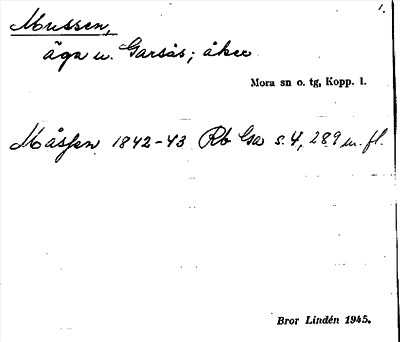 1.
Mussen,
äga u. Garsås; åker
Mora sn o. tg, Kopp. l.
Måssen 1842-43 Rb Gsa s. 4, 289 m. fl.
Bror Lindén 1945.